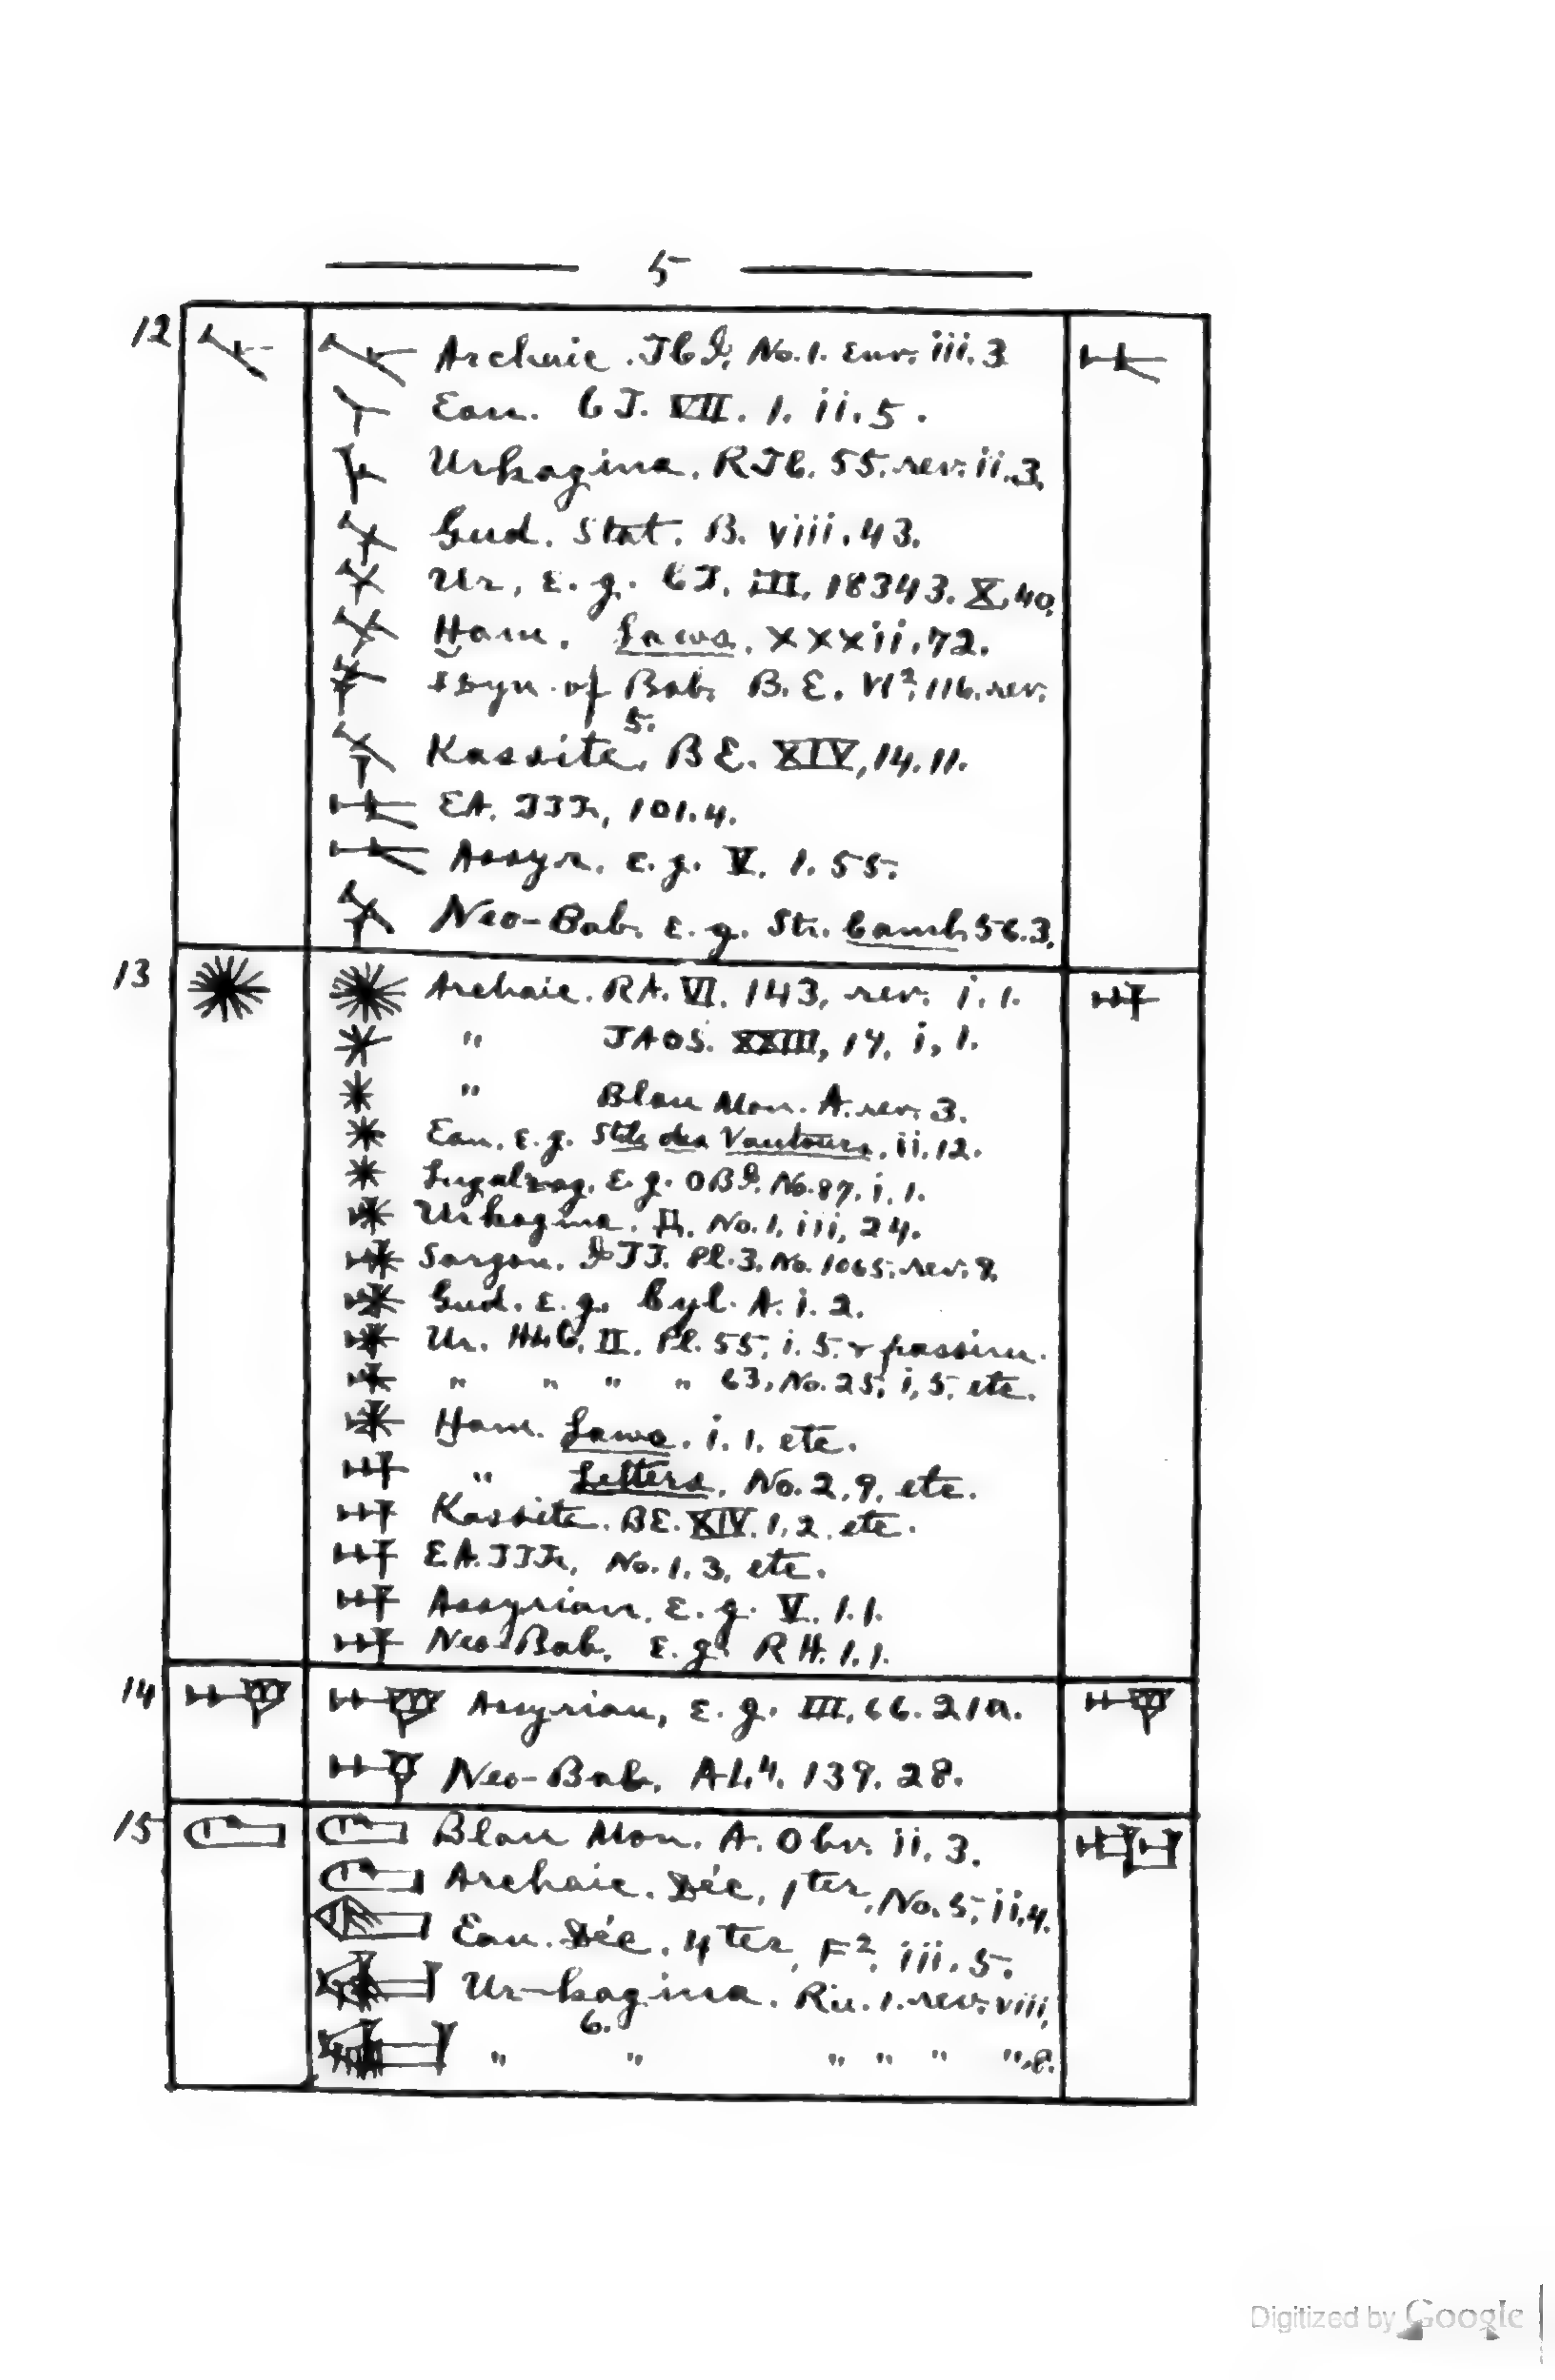 5
12 Archaic. TCI, No. 1. Env. iii. 3
Ean. CT. VII. 1. ii. 5.
Urkagina. RTC. 55. rev. ii. 3.
Gud. Stat. B. viii. 43.
Ur, E. g. CT. III, 18343. X, 40.
Ḫam. Laws. xxxii. 72.
I Dyn. of Bab. B. E. VI², 116. rev.
5.
Kassite. BE. XIV, 14. 11.
EA. TTTh, 101. 4.
Assyr. E. g. V. 1. 55.
Neo-Bab. E. g. Str. Camb. 56. 3.
13 Archaic. RA. VI. 143, rev. i. 1.
" JAOS. XXIII, 14, i, 1.
" Blau Mon. A. rev. 3.
Ean. E. g. Stèle des Vautours, ii. 12.
Lugalzag. E. g. OBI. No. 87. i. 1.
Urkagina. No. 1, iii, 24.
Sargon. ITT. Pl. 3, No. 1065. rev. 8.
Gud. E. g. Cyl. A. i. 2.
Ur. HLC. II. Pl. 55, i. 5. & passim.
" " " " 63, No. 25, i, 5, etc.
Ḫam. Laws. i. 1. etc.
" Letters, No. 2, 9, etc.
Kassite. BE. XIV. 1, 2. etc.
EA. TTTh, No. 1. 3, etc.
Assyrian. E. g. V. 1. 1.
Neo-Bab. E. g. RH. 1. 1.
14 Assyrian, E. g. III, 66. 21a.
Neo-Bab. AL⁴. 139. 28.
15 Blau Mon. A. Obv. ii. 3.
Archaic. Déc, 1ter, No. 5, ii. 4.
Ean. Déc. 4ter, F², iii. 5.
Ur-kagina. Riu. 1. rev. viii,
6.
" " " " " ", 8.
Digitized by Google